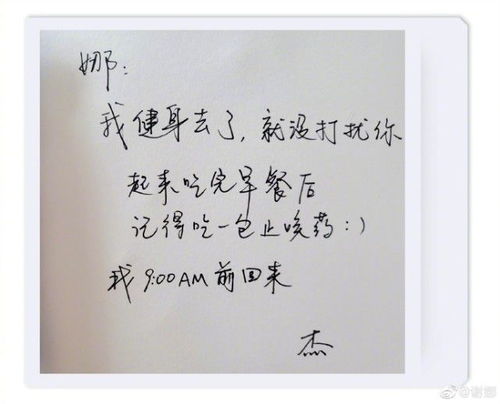 娜：
我健身去了，就没打扰你
起来吃完早餐后
记得吃一包止咳药：）
我 9:00AM 前回来
杰
@谢娜